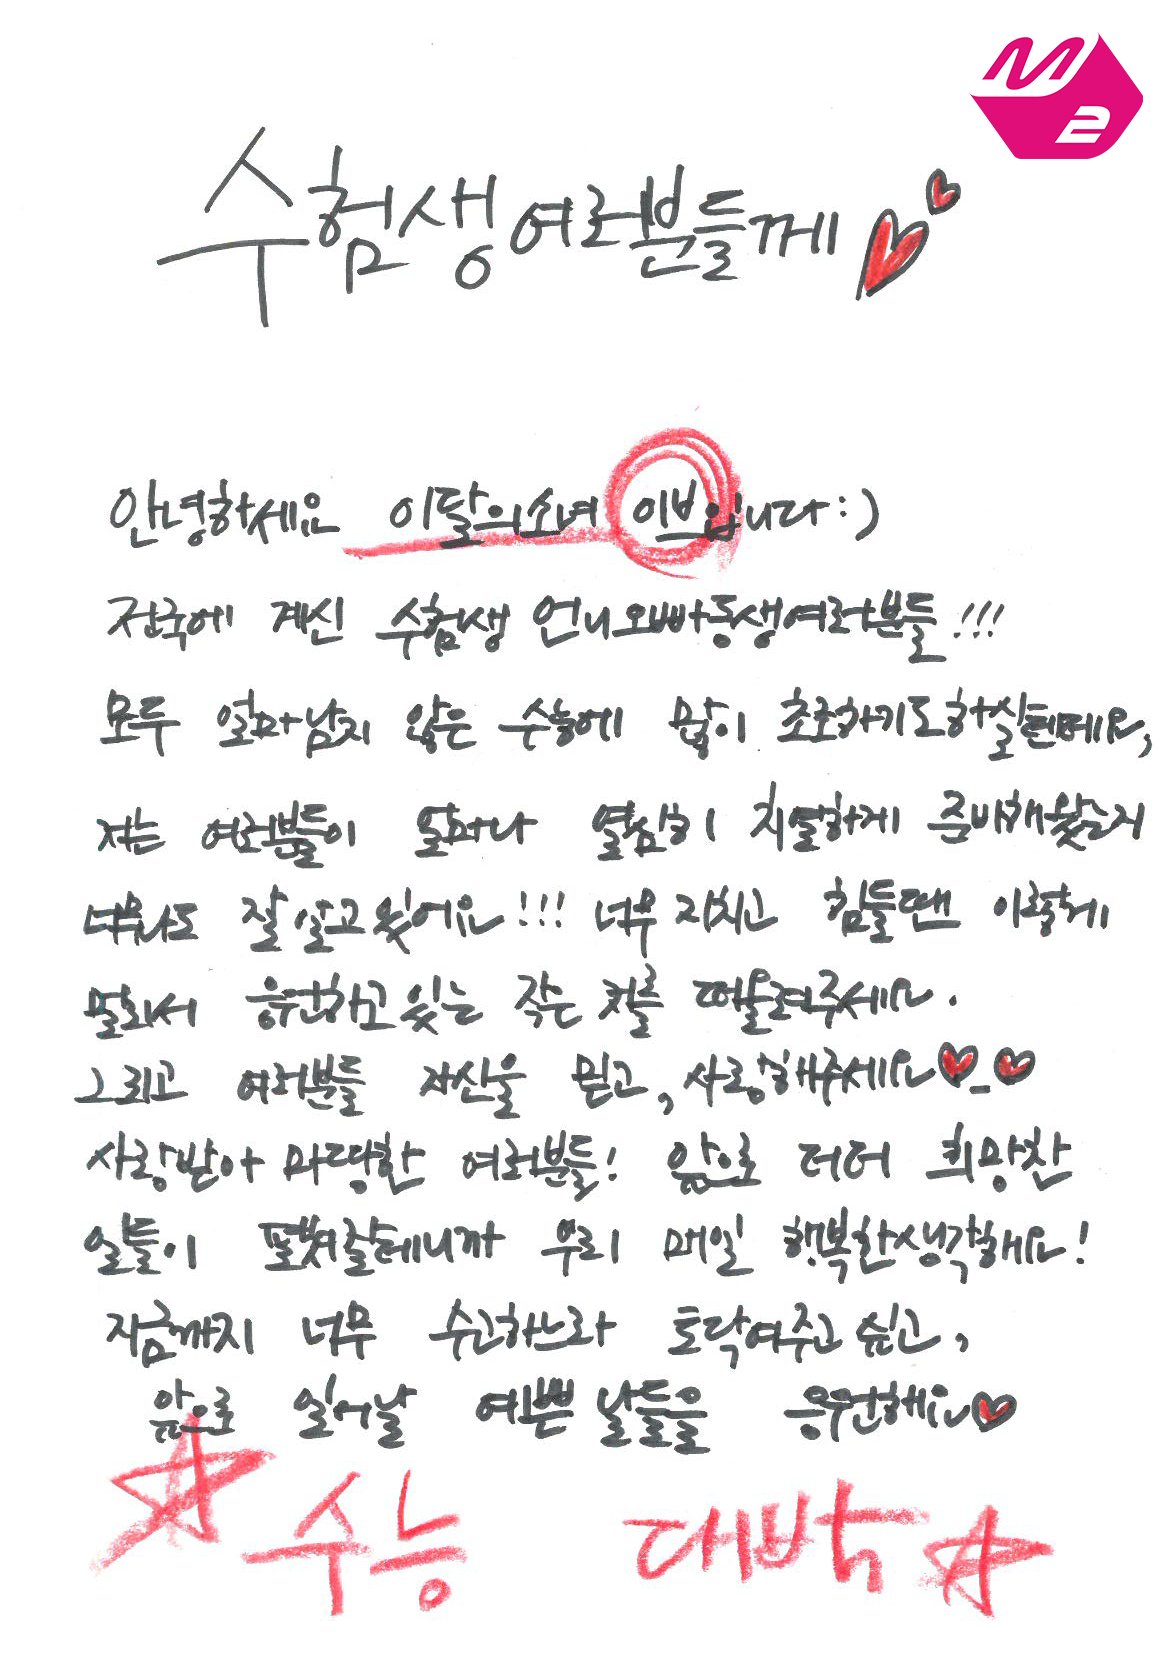 M2
수험생 여러분들께
안녕하세요 이달의소녀 이브입니다:)
전국에 계신 수험생 언니오빠동생여러분들!!!
모두 얼마남지 않은 수능에 많이 초조하기도하실텐데요,
저는 여러분들이 얼마나 열심히 치열하게 준비해왔는지
너무나도 잘 알고있어요!!! 너무 지치고 힘들땐 이렇게
멀리서 응원하고있는 작은 저를 떠올려주세요.
그리고 여러분들 자신을 믿고, 사랑해주세요
사랑받아 마땅한 여러분들! 앞으로 더더 희망찬
일들이 펼쳐질테니까 우리 매일 행복한생각해요!
지금까지 너무 수고하느라 토닥여주고싶고,
앞으로 일어날 예쁜 날들을 응원해요
수능 대박